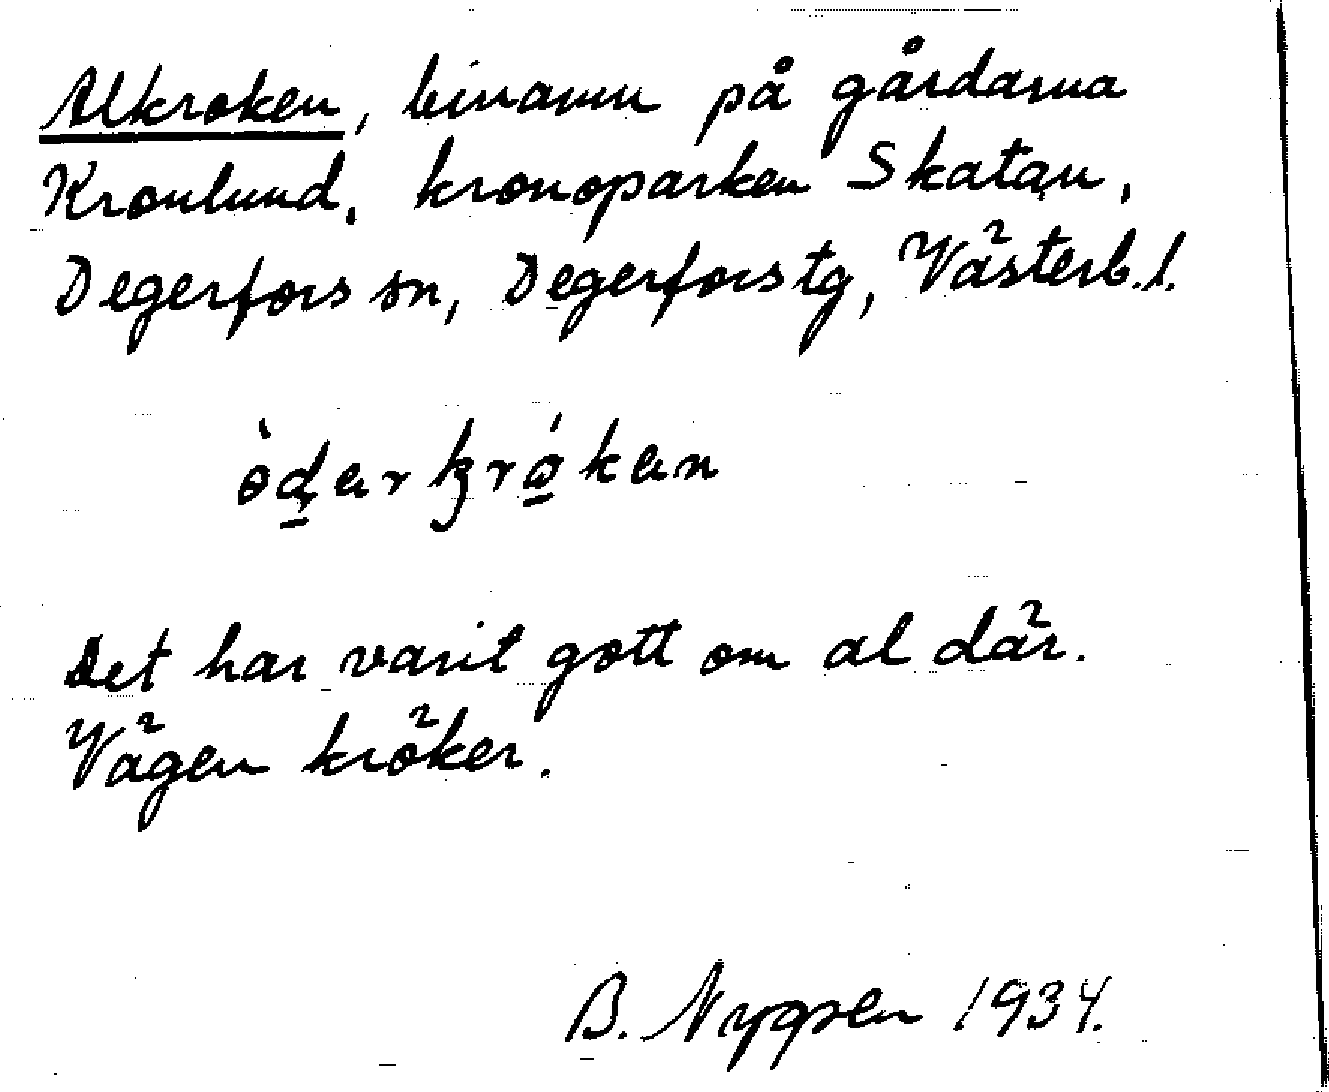 Alkroken, binamn på gårdarna
Kronlund, kronoparken Skatan,
Degerfors sn, Degerfors tg, Västerb. l.
Det har varit gott om al där.
Vägen kröker.
B. Nygren 1934.